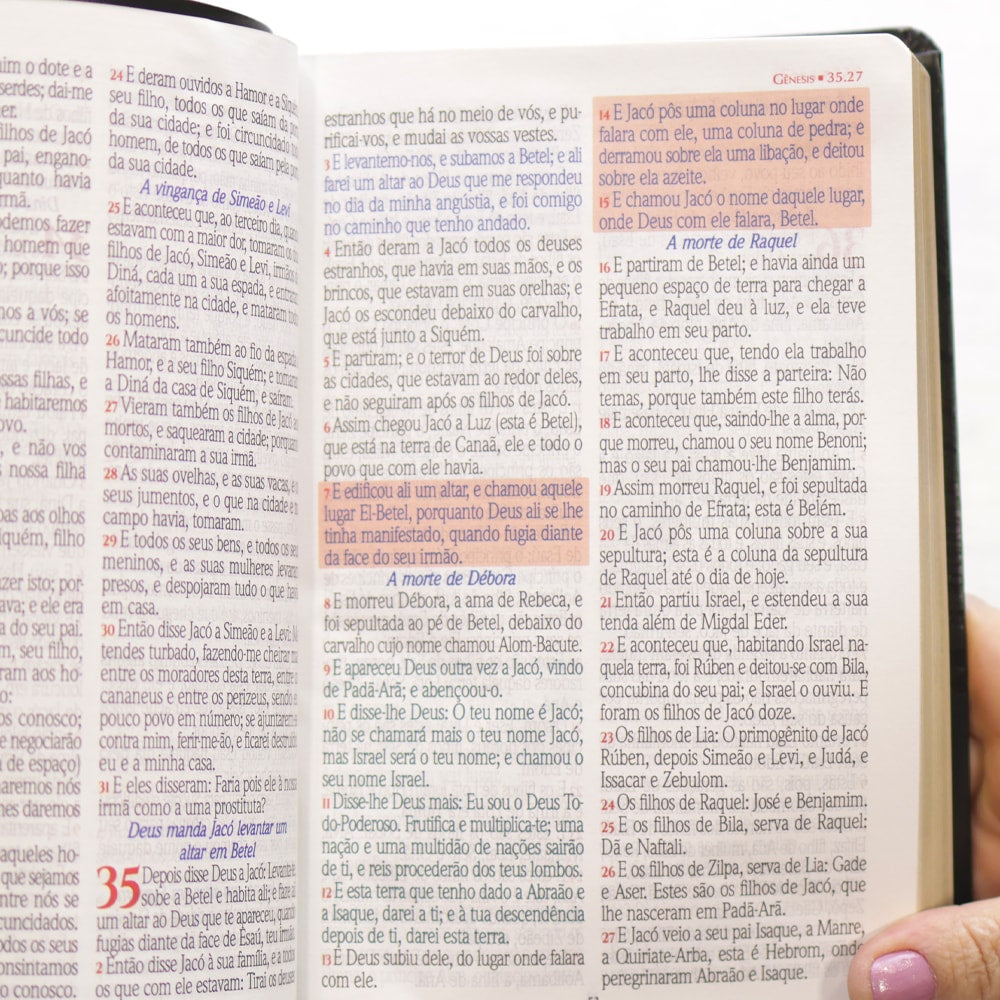 im o dote e a
serdes; dai-me
er.
ilhos de Jacó
pai, engano-
quanto havia
rmã.
odemos fazer
homem que
; porque isso
nos a vós; se
cuncide todo
ossas filhas, e
habitaremos
ovo.
, e não vos
nossa filha
oas aos olhos
iquém, filho
azer isto; por-
ava; e ele era
a do seu pai.
m, seu filho,
ram aos ho-
o:
os conosco;
e negociarão
a de espaço)
aremos nós
hes daremos
aqueles ho-
que sejamos
ntre nós se
cuncidados.
odos os seus
onsintamos
o conosco.
24 E deram ouvidos a Hamor e a Siqu
seu filho, todos os que saíam da po
da sua cidade; e foi circuncidado to
homem, de todos os que saíam pela po
da sua cidade.
A vingança de Simeão e Levi
25 E aconteceu que, ao terceiro dia, quan
estavam com a maior dor, tomaram os
filhos de Jacó, Simeão e Levi, irmãos
Diná, cada um a sua espada, e entrara
afoitamente na cidade, e mataram todo
os homens.
26 Mataram também ao fio da espada
Hamor, e a seu filho Siquém; e tomara
a Diná da casa de Siquém, e saíram.
27 Vieram também os filhos de Jacó a
mortos, e saquearam a cidade; porquan
contaminaram a sua irmã.
28 As suas ovelhas, e as suas vacas, e
seus jumentos, e o que na cidade e n
campo havia, tomaram.
29 E todos os seus bens, e todos os seu
meninos, e as suas mulheres levara
presos, e despojaram tudo o que hav
em casa.
30 Então disse Jacó a Simeão e a Levi:
tendes turbado, fazendo-me cheirar ma
entre os moradores desta terra, entre o
cananeus e entre os perizeus, sendo e
pouco povo em número; se ajuntarem-s
contra mim, ferir-me-ão, e ficarei destruído
eu e a minha casa.
31 E eles disseram: Faria pois ele à noss
irmã como a uma prostituta?
Deus manda Jacó levantar um
altar em Betel
35 Depois disse Deus a Jacó: Levante
sobe a Betel e habita ali; e faze ali
um altar ao Deus que te apareceu, quando
fugias diante da face de Esaú, teu irmão
2 Então disse Jacó à sua família, e a todos
os que com ele estavam: Tirai os deuses
GÊNESIS ▪ 35.27
estranhos que há no meio de vós, e pu-
rificai-vos, e mudai as vossas vestes.
3 E levantemo-nos, e subamos a Betel; e ali
farei um altar ao Deus que me respondeu
no dia da minha angústia, e foi comigo
no caminho que tenho andado.
4 Então deram a Jacó todos os deuses
estranhos, que havia em suas mãos, e os
brincos, que estavam em suas orelhas; e
Jacó os escondeu debaixo do carvalho,
que está junto a Siquém.
5 E partiram; e o terror de Deus foi sobre
as cidades, que estavam ao redor deles,
e não seguiram após os filhos de Jacó.
6 Assim chegou Jacó a Luz (esta é Betel),
que está na terra de Canaã, ele e todo o
povo que com ele havia.
7 E edificou ali um altar, e chamou aquele
lugar El-Betel, porquanto Deus ali se lhe
tinha manifestado, quando fugia diante
da face do seu irmão.
A morte de Débora
8 E morreu Débora, a ama de Rebeca, e
foi sepultada ao pé de Betel, debaixo do
carvalho cujo nome chamou Alom-Bacute.
9 E apareceu Deus outra vez a Jacó, vindo
de Padã-Arã; e abençoou-o.
10 E disse-lhe Deus: O teu nome é Jacó;
não se chamará mais o teu nome Jacó,
mas Israel será o teu nome; e chamou o
seu nome Israel.
11 Disse-lhe Deus mais: Eu sou o Deus To-
do-Poderoso. Frutifica e multiplica-te; uma
nação e uma multidão de nações sairão
de ti, e reis procederão dos teus lombos.
12 E esta terra que tenho dado a Abraão e
a Isaque, darei a ti; e à tua descendência
depois de ti, darei esta terra.
13 E Deus subiu dele, do lugar onde falara
com ele.
14 E Jacó pôs uma coluna no lugar onde
falara com ele, uma coluna de pedra; e
derramou sobre ela uma libação, e deitou
sobre ela azeite.
15 E chamou Jacó o nome daquele lugar,
onde Deus com ele falara, Betel.
A morte de Raquel
16 E partiram de Betel; e havia ainda um
pequeno espaço de terra para chegar a
Efrata, e Raquel deu à luz, e ela teve
trabalho em seu parto.
17 E aconteceu que, tendo ela trabalho
em seu parto, lhe disse a parteira: Não
temas, porque também este filho terás.
18 E aconteceu que, saindo-lhe a alma, por-
que morreu, chamou o seu nome Benoni;
mas o seu pai chamou-lhe Benjamim.
19 Assim morreu Raquel, e foi sepultada
no caminho de Efrata; esta é Belém.
20 E Jacó pôs uma coluna sobre a sua
sepultura; esta é a coluna da sepultura
de Raquel até o dia de hoje.
21 Então partiu Israel, e estendeu a sua
tenda além de Migdal Eder.
22 E aconteceu que, habitando Israel na-
quela terra, foi Rúben e deitou-se com Bila,
concubina do seu pai; e Israel o ouviu. E
foram os filhos de Jacó doze.
23 Os filhos de Lia: O primogênito de Jacó
Rúben, depois Simeão e Levi, e Judá, e
Issacar e Zebulom.
24 Os filhos de Raquel: José e Benjamim.
25 E os filhos de Bila, serva de Raquel:
Dã e Naftali.
26 E os filhos de Zilpa, serva de Lia: Gade
e Aser. Estes são os filhos de Jacó, que
lhe nasceram em Padã-Arã.
27 E Jacó veio a seu pai Isaque, a Manre,
a Quiriate-Arba, esta é Hebrom, onde
peregrinaram Abraão e Isaque.